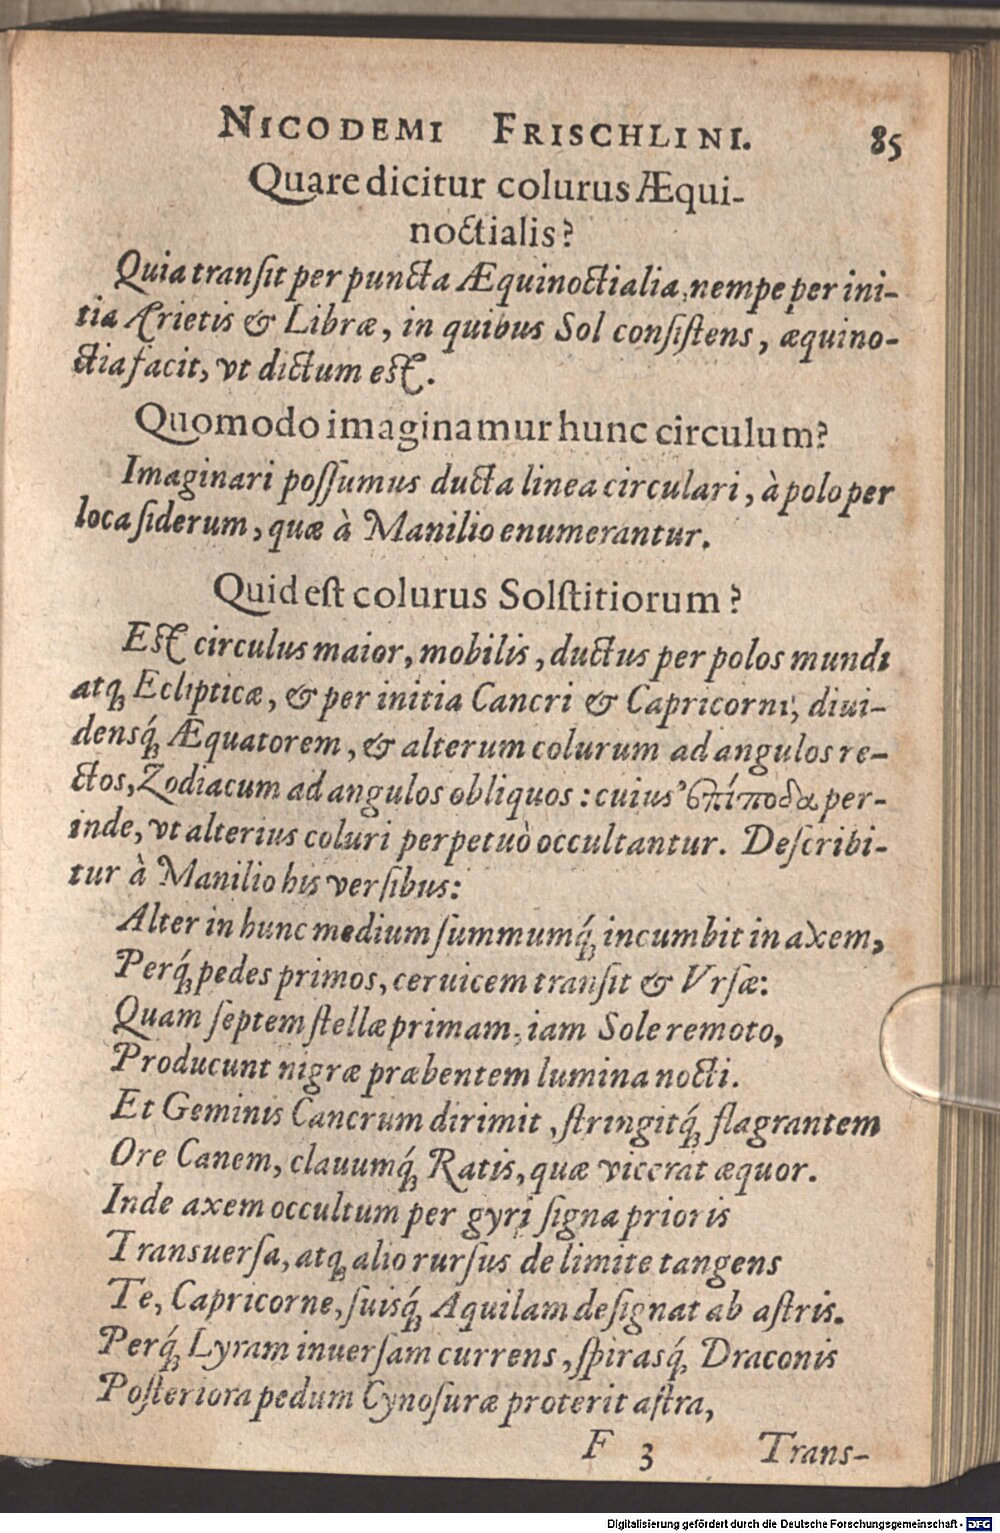 NICODEMI FRISCHLINI. 85
Quare dicitur colurus Æqui-
noctialis?
Quia tranſit per puncta Æquinoctialia, nempe per ini-
tia Arietis & Libræ, in quibus Sol conſiſtens, æquino-
ctia facit, vt dictum eſt.
Quomodo imaginamur hunc circulum?
Imaginari poſſumus ducta linea circulari, à polo per
loca ſiderum, quæ à Manilio enumerantur.
Quid eſt colurus Solſtitiorum?
Eſt circulus maior, mobilis, ductus per polos mundi
atq; Eclipticæ, & per initia Cancri & Capricorni, diui-
densq́; Æquatorem, & alterum colurum ad angulos re-
ctos, Zodiacum ad angulos obliquos: cuius ἐπίποδα per-
inde, vt alterius coluri perpetuò occultantur. Deſcribi-
tur à Manilio his verſibus:
Alter in hunc medium ſummumq́; incumbit in axem,
Perq́; pedes primos, ceruicem tranſit & Vrſæ:
Quam ſeptem ſtellæ primam, iam Sole remoto,
Producunt nigræ præbentem lumina nocti.
Et Geminis Cancrum dirimit, ſtringitq́; flagrantem
Ore Canem, clauumq́; Ratis, quæ vicerat æquor.
Inde axem occultum per gyri ſigna prioris
Transuerſa, atq; alio rurſus de limite tangens
Te, Capricorne, ſuisq́; Aquilam deſignat ab aſtris.
Perq́; Lyram inuerſam currens, ſpirasq́; Draconis
Poſteriora pedum Cynoſuræ proterit aſtra,
F 3 Trans-
Digitalisierung gefördert durch die Deutsche Forschungsgemeinschaft - DFG